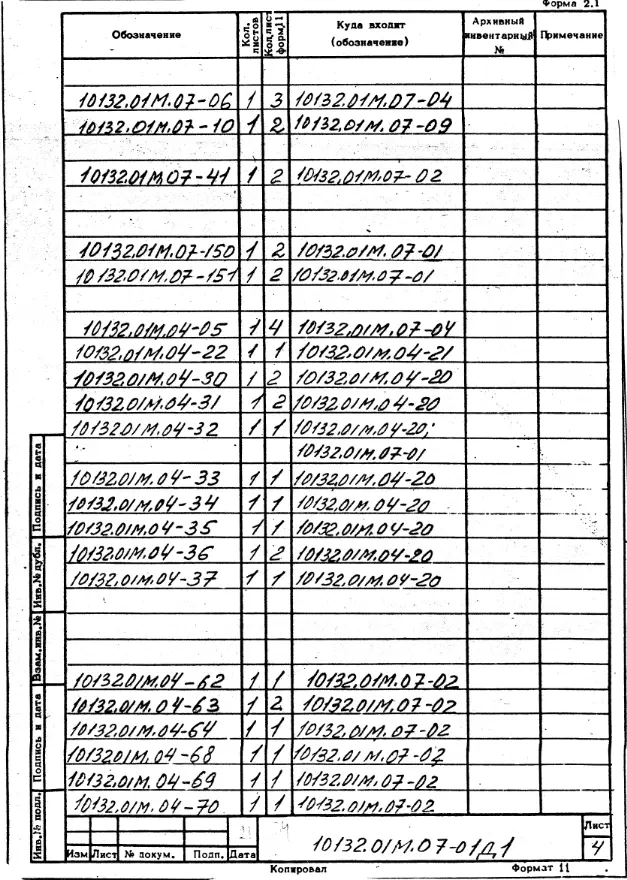 Форма 2.1
Обозначение Кол. листов Кол.лист форм.11 Куда входит (обозначение) Архивный инвентарный № Примечание
10132.01М.07-06 1 3 10132.01М.07-04
10132.01М.07-10 1 2 10132.01М.07-09
10132.01М.07-41 1 2 10132.01М.07-02
10132.01М.07-150 1 2 10132.01М.07-01
10132.01М.07-151 1 2 10132.01М.07-01
10132.01М.04-05 1 4 10132.01М.07-04
10132.01М.04-22 1 1 10132.01М.04-21
10132.01М.04-30 1 2 10132.01М.04-20
10132.01М.04-31 1 2 10132.01М.04-20
10132.01М.04-32 1 1 10132.01М.04-20;
10132.01М.07-01
10132.01М.04-33 1 1 10132.01М.04-20
10132.01М.04-34 1 1 10132.01М.04-20
10132.01М.04-35 1 1 10132.01М.04-20
10132.01М.04-36 1 2 10132.01М.04-20
10132.01М.04-37 1 1 10132.01М.04-20
10132.01М.04-62 1 1 10132.01М.07-02
10132.01М.04-63 1 2 10132.01М.07-02
10132.01М.04-64 1 1 10132.01М.07-02
10132.01М.04-68 1 1 10132.01М.07-02
10132.01М.04-69 1 1 10132.01М.07-02
10132.01М.04-70 1 1 10132.01М.07-02
Инв.№ подл. Подпись и дата Взам.инв.№ Инв.№ дубл. Подпись и дата
Изм Лист № докум. Подп. Дата
10132.01М.07-01Д1
Лист
4
Копировал Формат 11